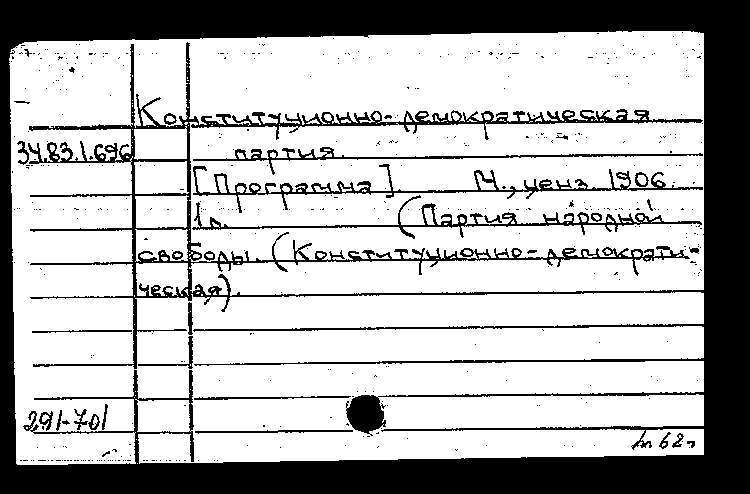 Конституционно-демократическая
34.83.1.696 партия.
[Программа]. М., ценз. 1906.
1 л. (Партия народной
свободы. (Конституционно-демократи-
ческая).
291-701